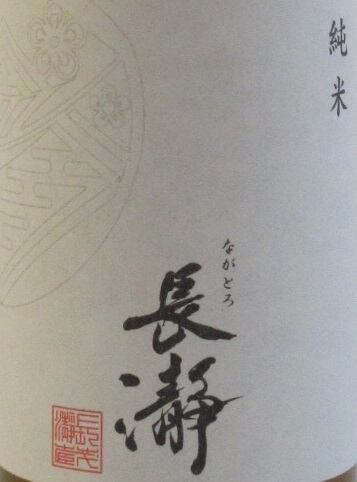 純米
ながとろ
長瀞